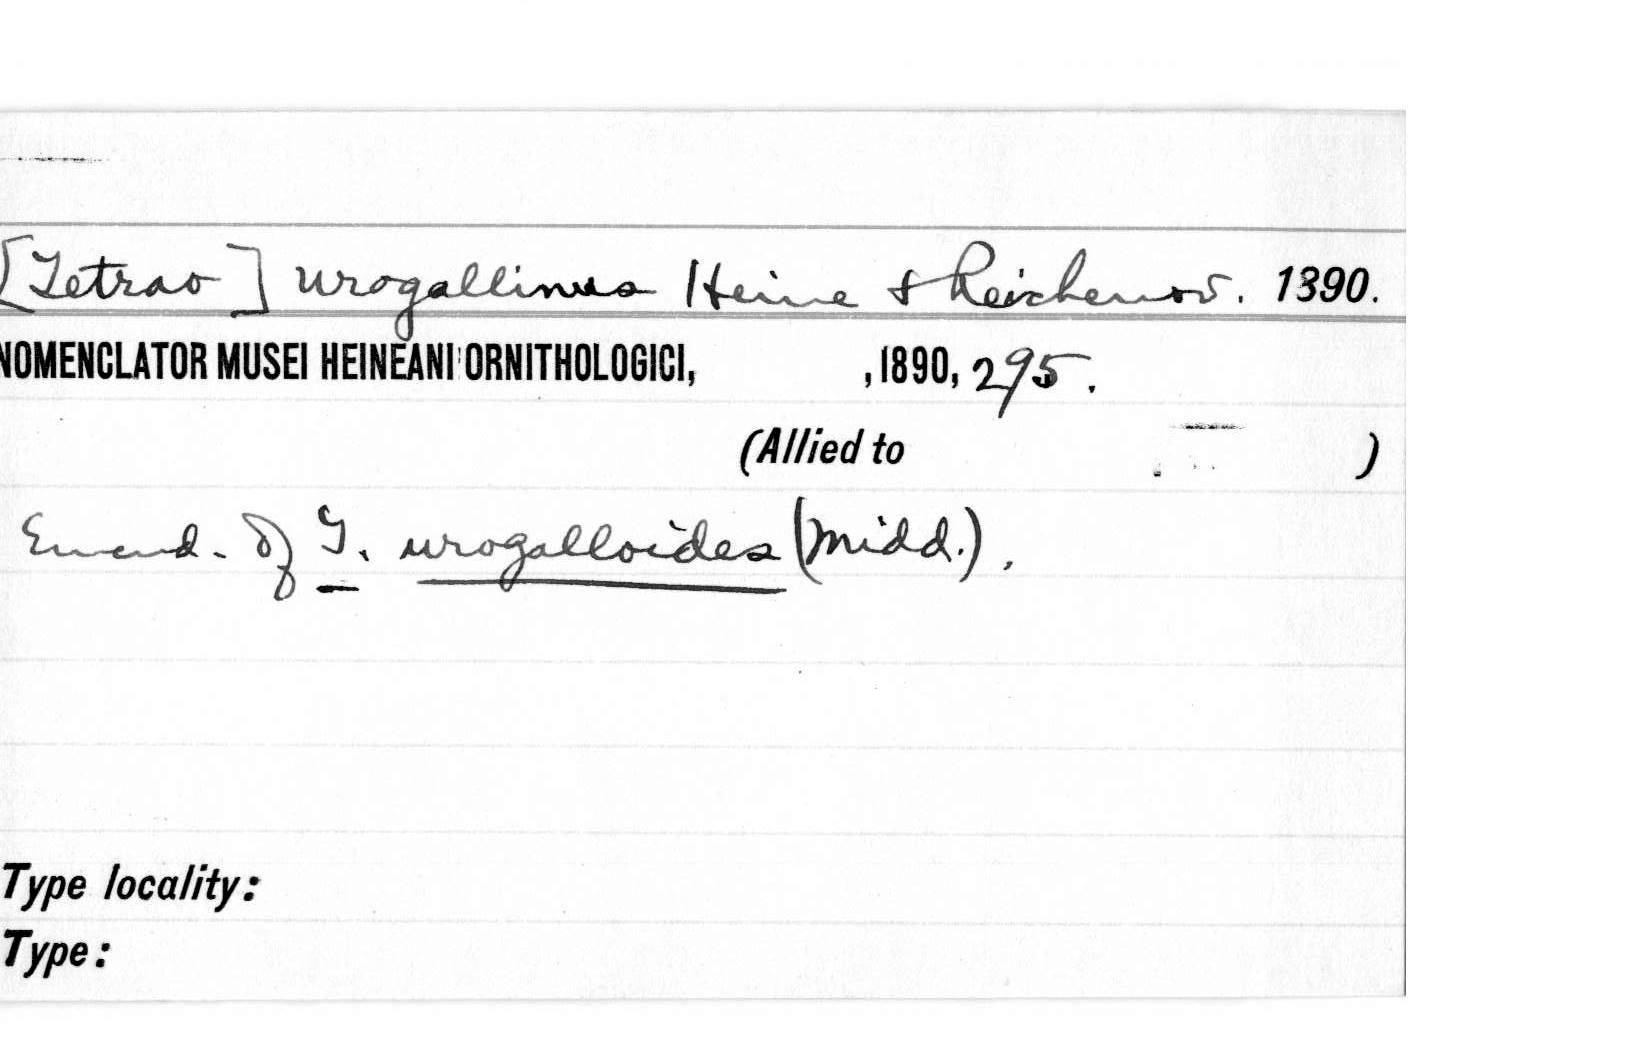 [Tetrao] urogallinus Heine & Reichenow. 1890.
NOMENCLATOR MUSEI HEINEANI ORNITHOLOGICI, , 1890, 295.
(Allied to )
Emend. of T. urogalloides (Midd.).
Type locality:
Type: